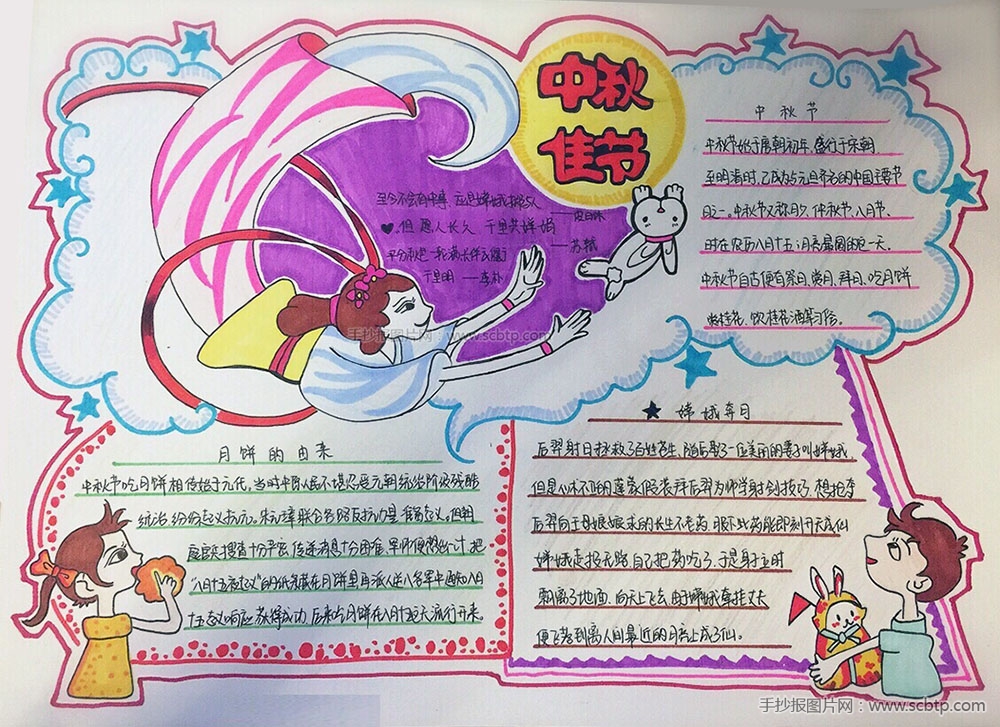 中秋
佳节
中秋节
中秋节始于唐朝初年,盛行于宋朝,
至明清时,已成为与元旦齐名的中国主要节
日之一。中秋节又称月夕、仲秋节、八月节
时在农历八月十五;月亮最圆的一天。
中秋节自古便有祭月、赏月、拜月、吃月饼
赏桂花、饮桂花酒等习俗。
但愿人长久,千里共婵娟
——苏轼
千里明——李朴
手抄报图片网:www.scbtp.com
月饼的由来
中秋节吃月饼相传始于元代。当时中原人民不堪忍受元朝统治阶级残酷
统治,纷纷起义抗元。朱元璋联合各路反抗力量准备起义。但朝
庭官兵搜查十分严密,传递消息十分困难,军师便想出一计,把
“八月十五夜起义”的纸条藏在月饼里再派人送入各军中通知八月
十五起义响应,获得成功,后来吃月饼在八月十五天流行开来。
嫦娥奔月
后羿射日拯救了百姓苍生,随后娶了一位美丽的妻子叫嫦娥,
但是心术不正的蓬蒙假装拜后羿为师学射剑技巧,想把夺
后羿向王母娘娘求的长生不老药,服下此药能即刻升天成仙
嫦娥走投无路,自己把药吃了,于是身子立时
飘离了地面,向天上飞去,由于嫦娥牵挂丈夫
便飞落到离人间最近的月亮上成了仙。
手抄报图片网:www.scbtp.com